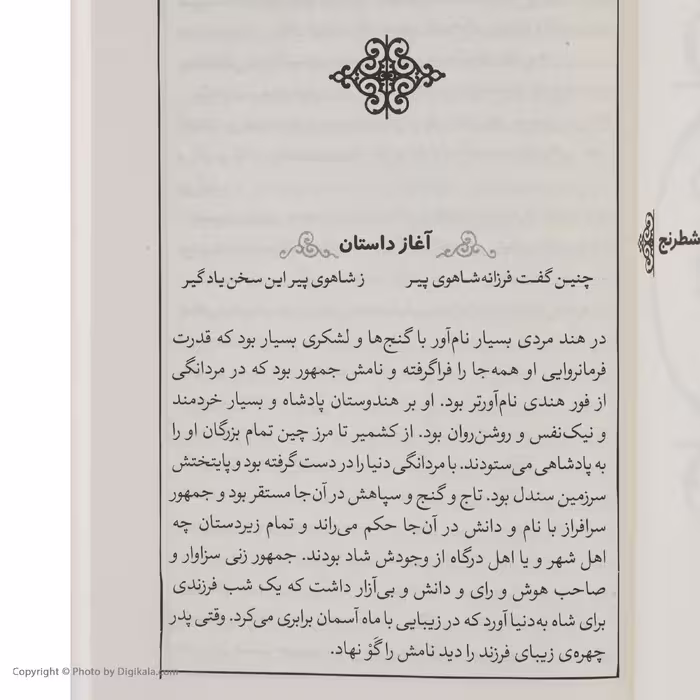 شطرنج
آغاز داستان
چنین گفت فرزانه شاهوی پیر ز شاهوی پیر این سخن یادگیر
در هند مردی بسیار نام‌آور با گنج‌ها و لشکری بسیار بود که قدرت
فرمانروایی او همه‌جا را فراگرفته و نامش جمهور بود که در مردانگی
از فور هندی نام‌آورتر بود. او بر هندوستان پادشاه و بسیار خردمند
و نیک‌نفس و روشن‌روان بود. از کشمیر تا مرز چین تمام بزرگان او را
به پادشاهی می‌ستودند. با مردانگی دنیا را در دست گرفته بود و پایتختش
سرزمین سندل بود. تاج و گنج و سپاهش در آن‌جا مستقر بود و جمهور
سرافراز با نام و دانش در آن‌جا حکم می‌راند و تمام زیردستان چه
اهل شهر و یا اهل درگاه از وجودش شاد بودند. جمهور زنی سزاوار و
صاحب هوش و رای و دانش و بی‌آزار داشت که یک شب فرزندی
برای شاه به‌دنیا آورد که در زیبایی با ماه آسمان برابری می‌کرد. وقتی پدر
چهره‌ی زیبای فرزند را دید نامش را گَوْ نهاد.
Copyright © Photo by Digikala.com